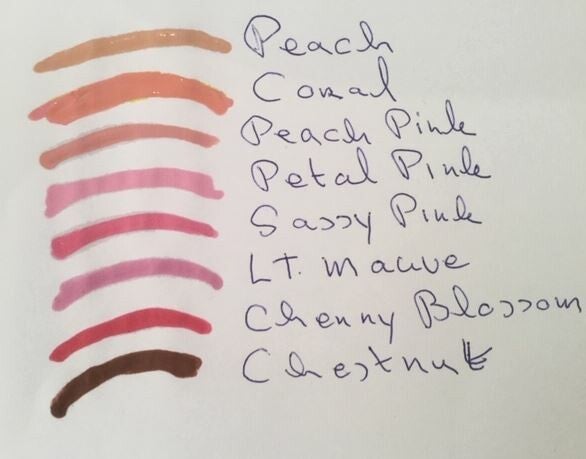 Peach
Coral
Peach Pink
Petal Pink
Sassy Pink
LT. mauve
Cherry Blossom
Chestnut